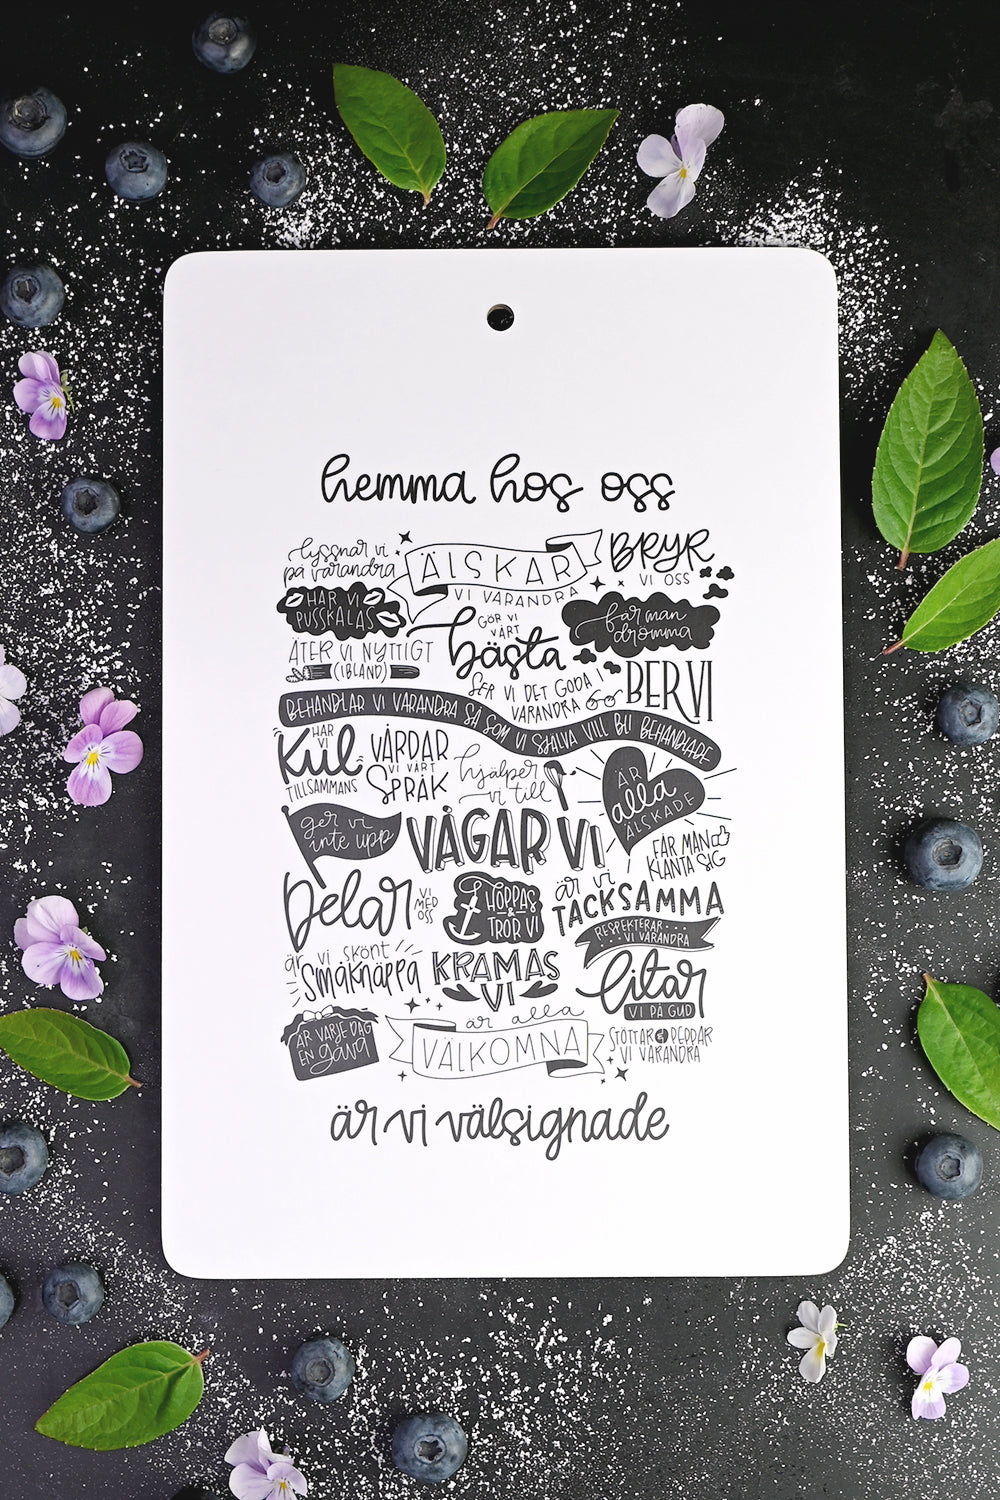 hemma hos oss
lyssnar vi
på varandra
ÄLSKAR
VI VARANDRA
BRYR
VI OSS
HAR VI
PUSSKALAS
GÖR VI
VÅRT
bästa
får man
drömma
ÄTER VI NYTTIGT
(IBLAND)
SER VI DET GODA I
VARANDRA
BER VI
BEHANDLAR VI VARANDRA SÅ SOM VI SJÄLVA VILL BLI BEHANDLADE
HAR
VI
Kul
TILLSAMMANS
VÅRDAR
VI VÅRT
SPRÅK
hjälper
vi till
ÄR
alla
ÄLSKADE
ger vi
inte upp
VÅGAR VI
FÅR MAN
KLANTA SIG
Delar
VI
MED
OSS
HOPPAS
&
TROR VI
är vi
TACKSAMMA
RESPEKTERAR
VI VARANDRA
är vi skönt
Småknäppa
KRAMAS
VI
Litar
VI PÅ GUD
ÄR VARJE DAG
EN gåva
är alla
VÄLKOMNA
STÖTTAR & PEPPAR
VI VARANDRA
är vi välsignade